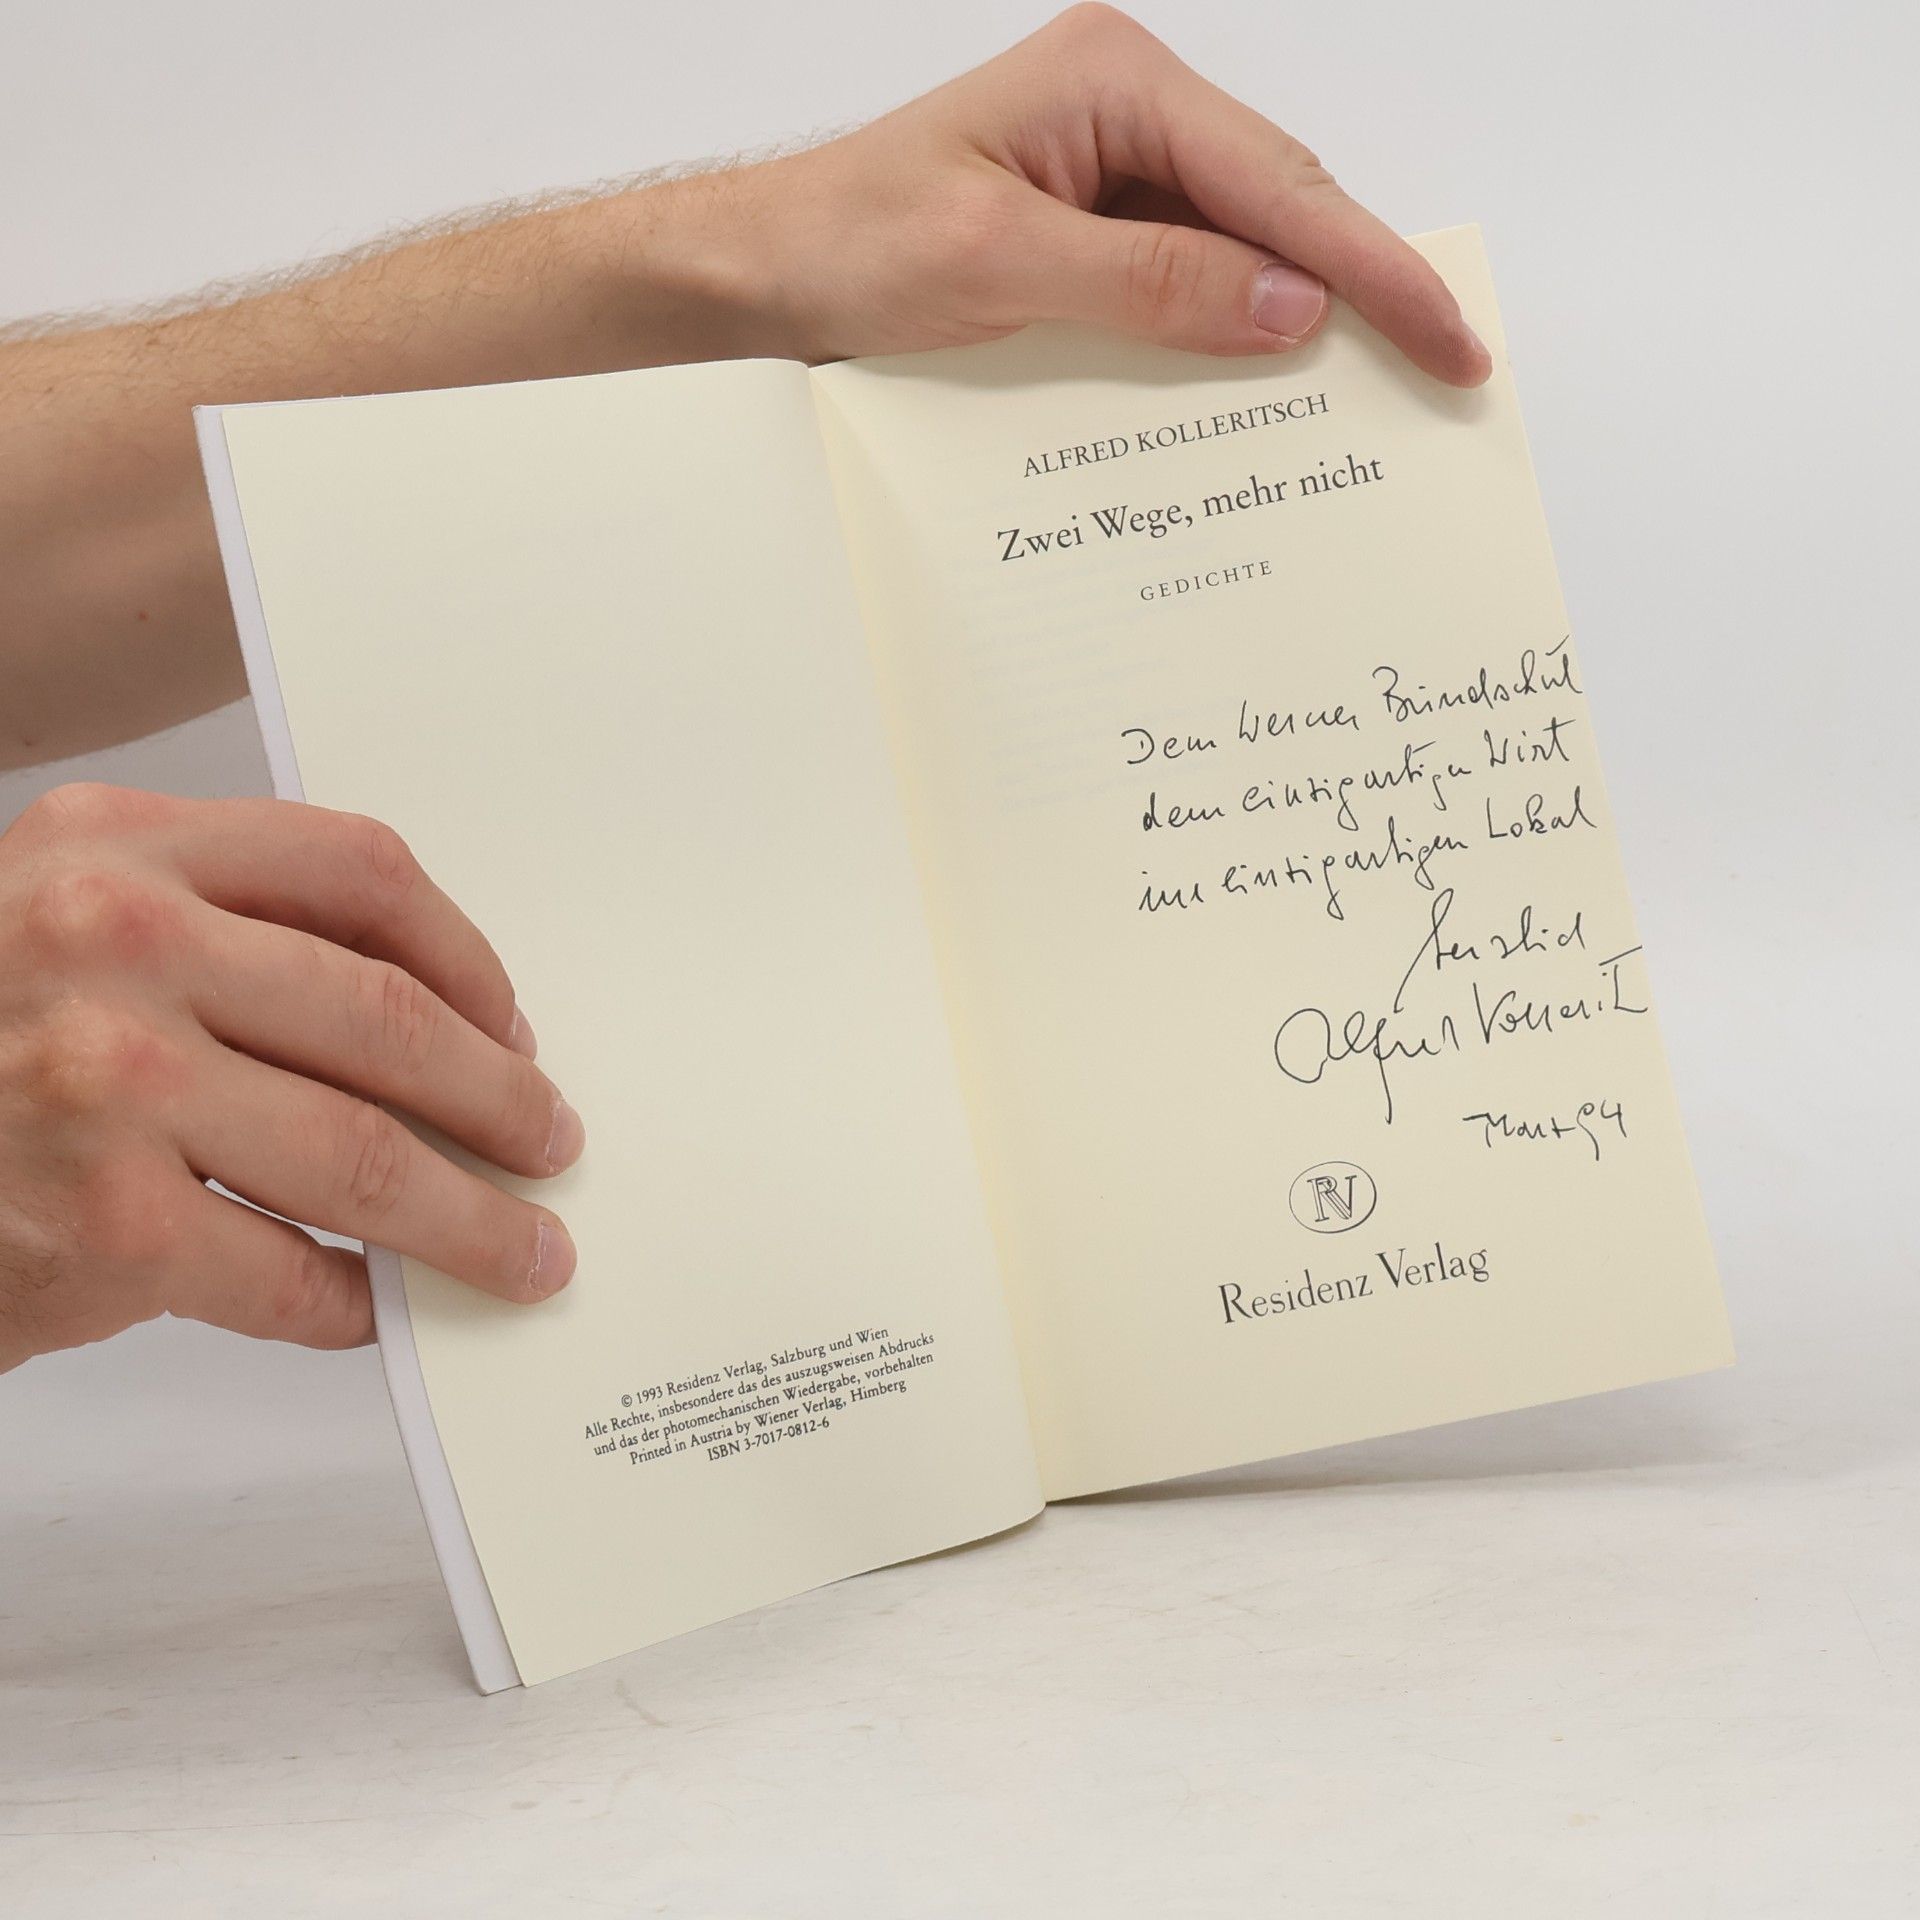 © 1993 Residenz Verlag, Salzburg und Wien
Alle Rechte, insbesondere das des auszugsweisen Abdrucks
und das der photomechanischen Wiedergabe, vorbehalten
Printed in Austria by Wiener Verlag, Himberg
ISBN 3-7017-0812-6
ALFRED KOLLERITSCH
Zwei Wege, mehr nicht
GEDICHTE
Dem Werner
dem einzigartigen Wirt
im einzigartigen Lokal
herzlich
Alfred Kolleritsch
März 94
RV
Residenz Verlag